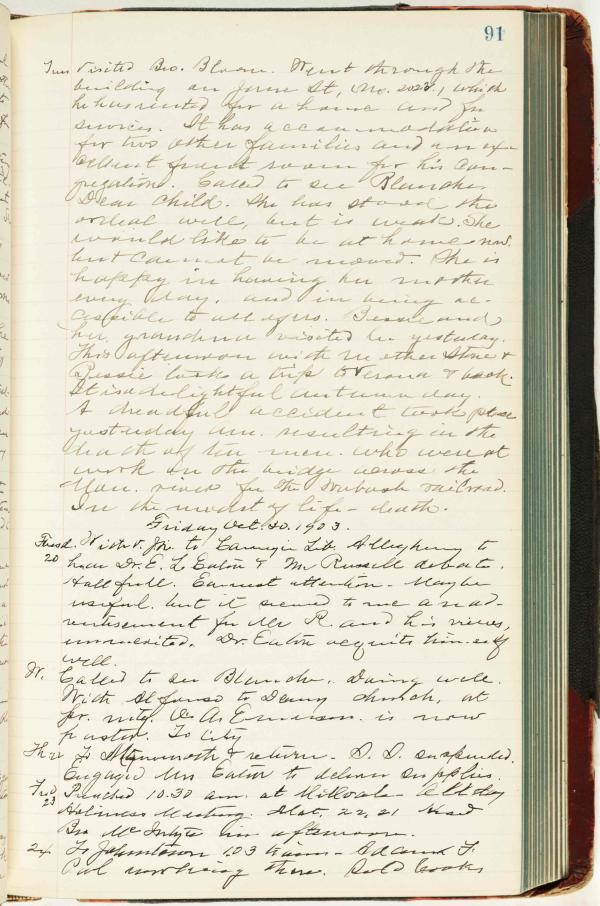 91
Visited Bro. Bloom. Went through the
building on June St, No. 2022, which
he has rented for a home and for
services. It has accommodation
for two other families and an ex-
cellent front room for his con-
gregation. Called to see Blanche,
Dear Child. She has stood the
ordeal well, but is weak. She
would like to be at home now.
but cannot be moved. She is
happy in having her mother
every day, and in being ac-
cessible to all others. Jessie and
her grandma visited her yesterday.
This afternoon with mother Stone &
Bessie took a trip to Verona & back.
It is a delightful autumn day.
A dreadful accident took place
yesterday am. resulting in the
death of ten men. who were at
work on the bridge across the
Mon. river for the Wabash railroad.
In the midst of life - death.
Friday Oct. 20. 1903.
Tuesd. With to Carnegie Lib. Allegheny to
20 hear Dr. E. L. Eaton & Mr Russell debate.
Hall full. Earnest attention. Maybe
useful. but it seemed to me an ad-
vertisement for Mr R. and his views,
unmerited. Dr. Eaton acquits himself
well.
W. Called to see Blanche. Doing well.
With to Denny church, at
pr. mtg. Emerson is now
pastor. To City
Th 22 To & return. suspended.
Engaged Mrs Eaton to deliver supplies.
Frid Preached 10.30 am. at Millvale All day
23 Holiness Meeting. Mat. 22, 21 Heard
Bro Mc Intyre him afternoon.
24 To Johnstown 1.03 train - Ed and F.
working there. Sold books